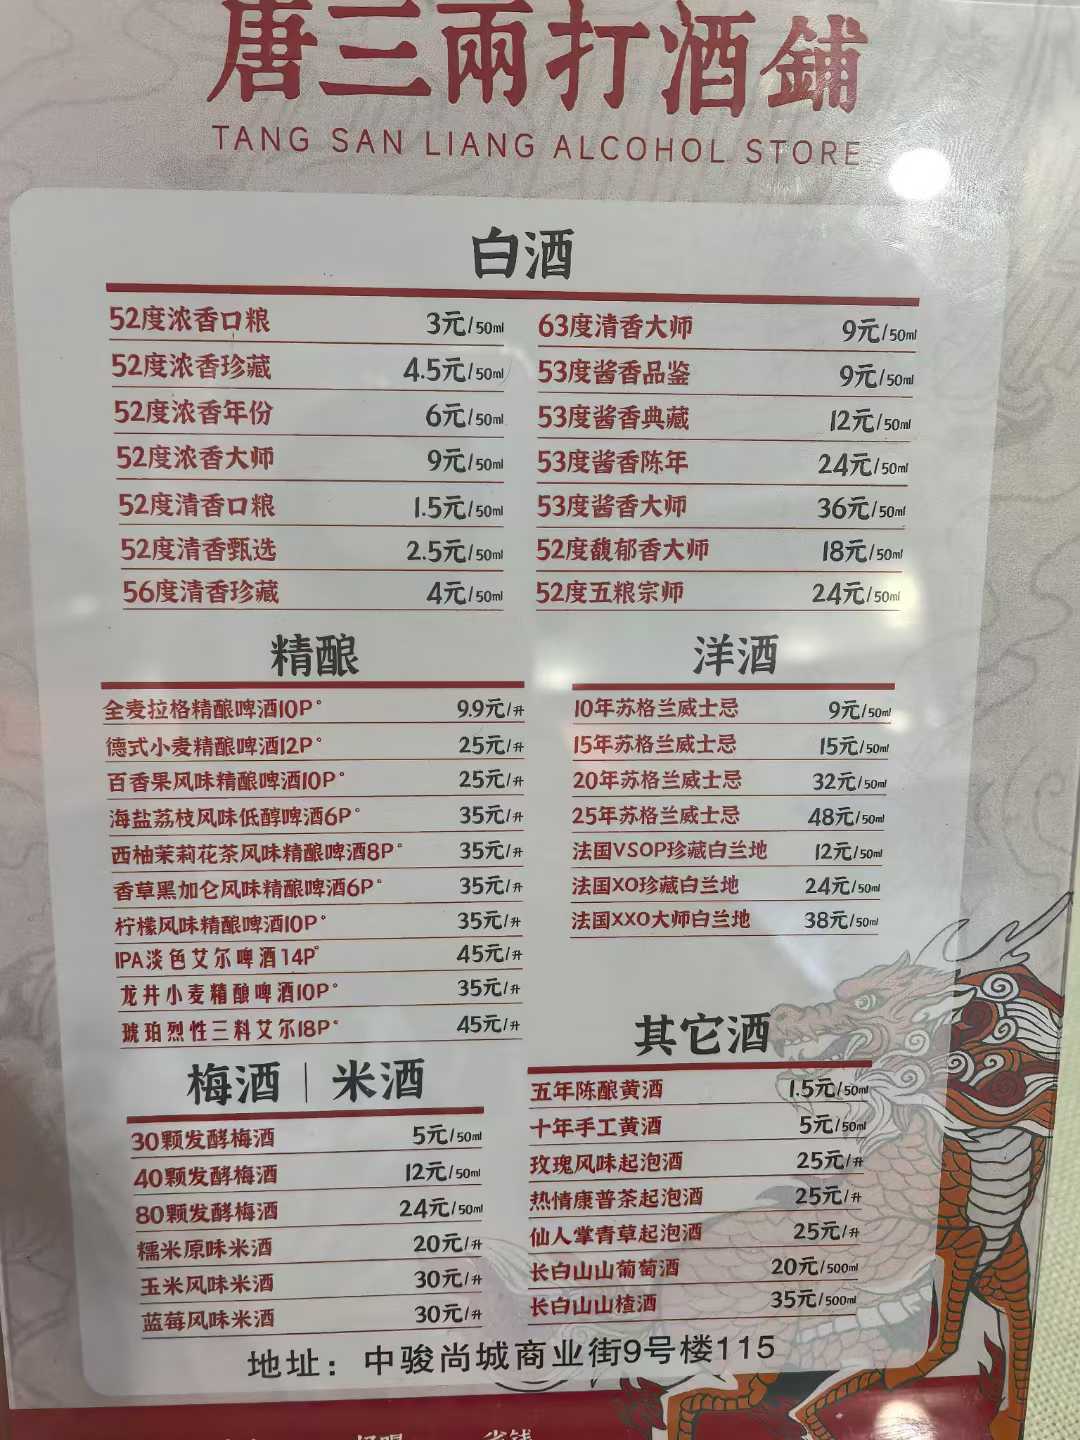 唐三兩打酒鋪
TANG SAN LIANG ALCOHOL STORE
白酒
52度浓香口粮 3元/50ml
52度浓香珍藏 4.5元/50ml
52度浓香年份 6元/50ml
52度浓香大师 9元/50ml
52度清香口粮 1.5元/50ml
52度清香甄选 2.5元/50ml
56度清香珍藏 4元/50ml
63度清香大师 9元/50ml
53度酱香品鉴 9元/50ml
53度酱香典藏 12元/50ml
53度酱香陈年 24元/50ml
53度酱香大师 36元/50ml
52度馥郁香大师 18元/50ml
52度五粮宗师 24元/50ml
精酿
全麦拉格精酿啤酒10P° 9.9元/升
德式小麦精酿啤酒12P° 25元/升
百香果风味精酿啤酒10P° 25元/升
海盐荔枝风味低醇啤酒6P° 35元/升
西柚茉莉花茶风味精酿啤酒8P° 35元/升
香草黑加仑风味精酿啤酒6P° 35元/升
柠檬风味精酿啤酒10P° 35元/升
IPA淡色艾尔啤酒14P° 45元/升
龙井小麦精酿啤酒10P° 35元/升
琥珀烈性三料艾尔18P° 45元/升
洋酒
10年苏格兰威士忌 9元/50ml
15年苏格兰威士忌 15元/50ml
20年苏格兰威士忌 32元/50ml
25年苏格兰威士忌 48元/50ml
法国VSOP珍藏白兰地 12元/50ml
法国XO珍藏白兰地 24元/50ml
法国XXO大师白兰地 38元/50ml
梅酒｜米酒
30颗发酵梅酒 5元/50ml
40颗发酵梅酒 12元/50ml
80颗发酵梅酒 24元/50ml
糯米原味米酒 20元/升
玉米风味米酒 30元/升
蓝莓风味米酒 30元/升
其它酒
五年陈酿黄酒 1.5元/50ml
十年手工黄酒 5元/50ml
玫瑰风味起泡酒 25元/升
热情康普茶起泡酒 25元/升
仙人掌青草起泡酒 25元/升
长白山山葡萄酒 20元/500ml
长白山山楂酒 35元/500ml
地址：中骏尚城商业街9号楼115